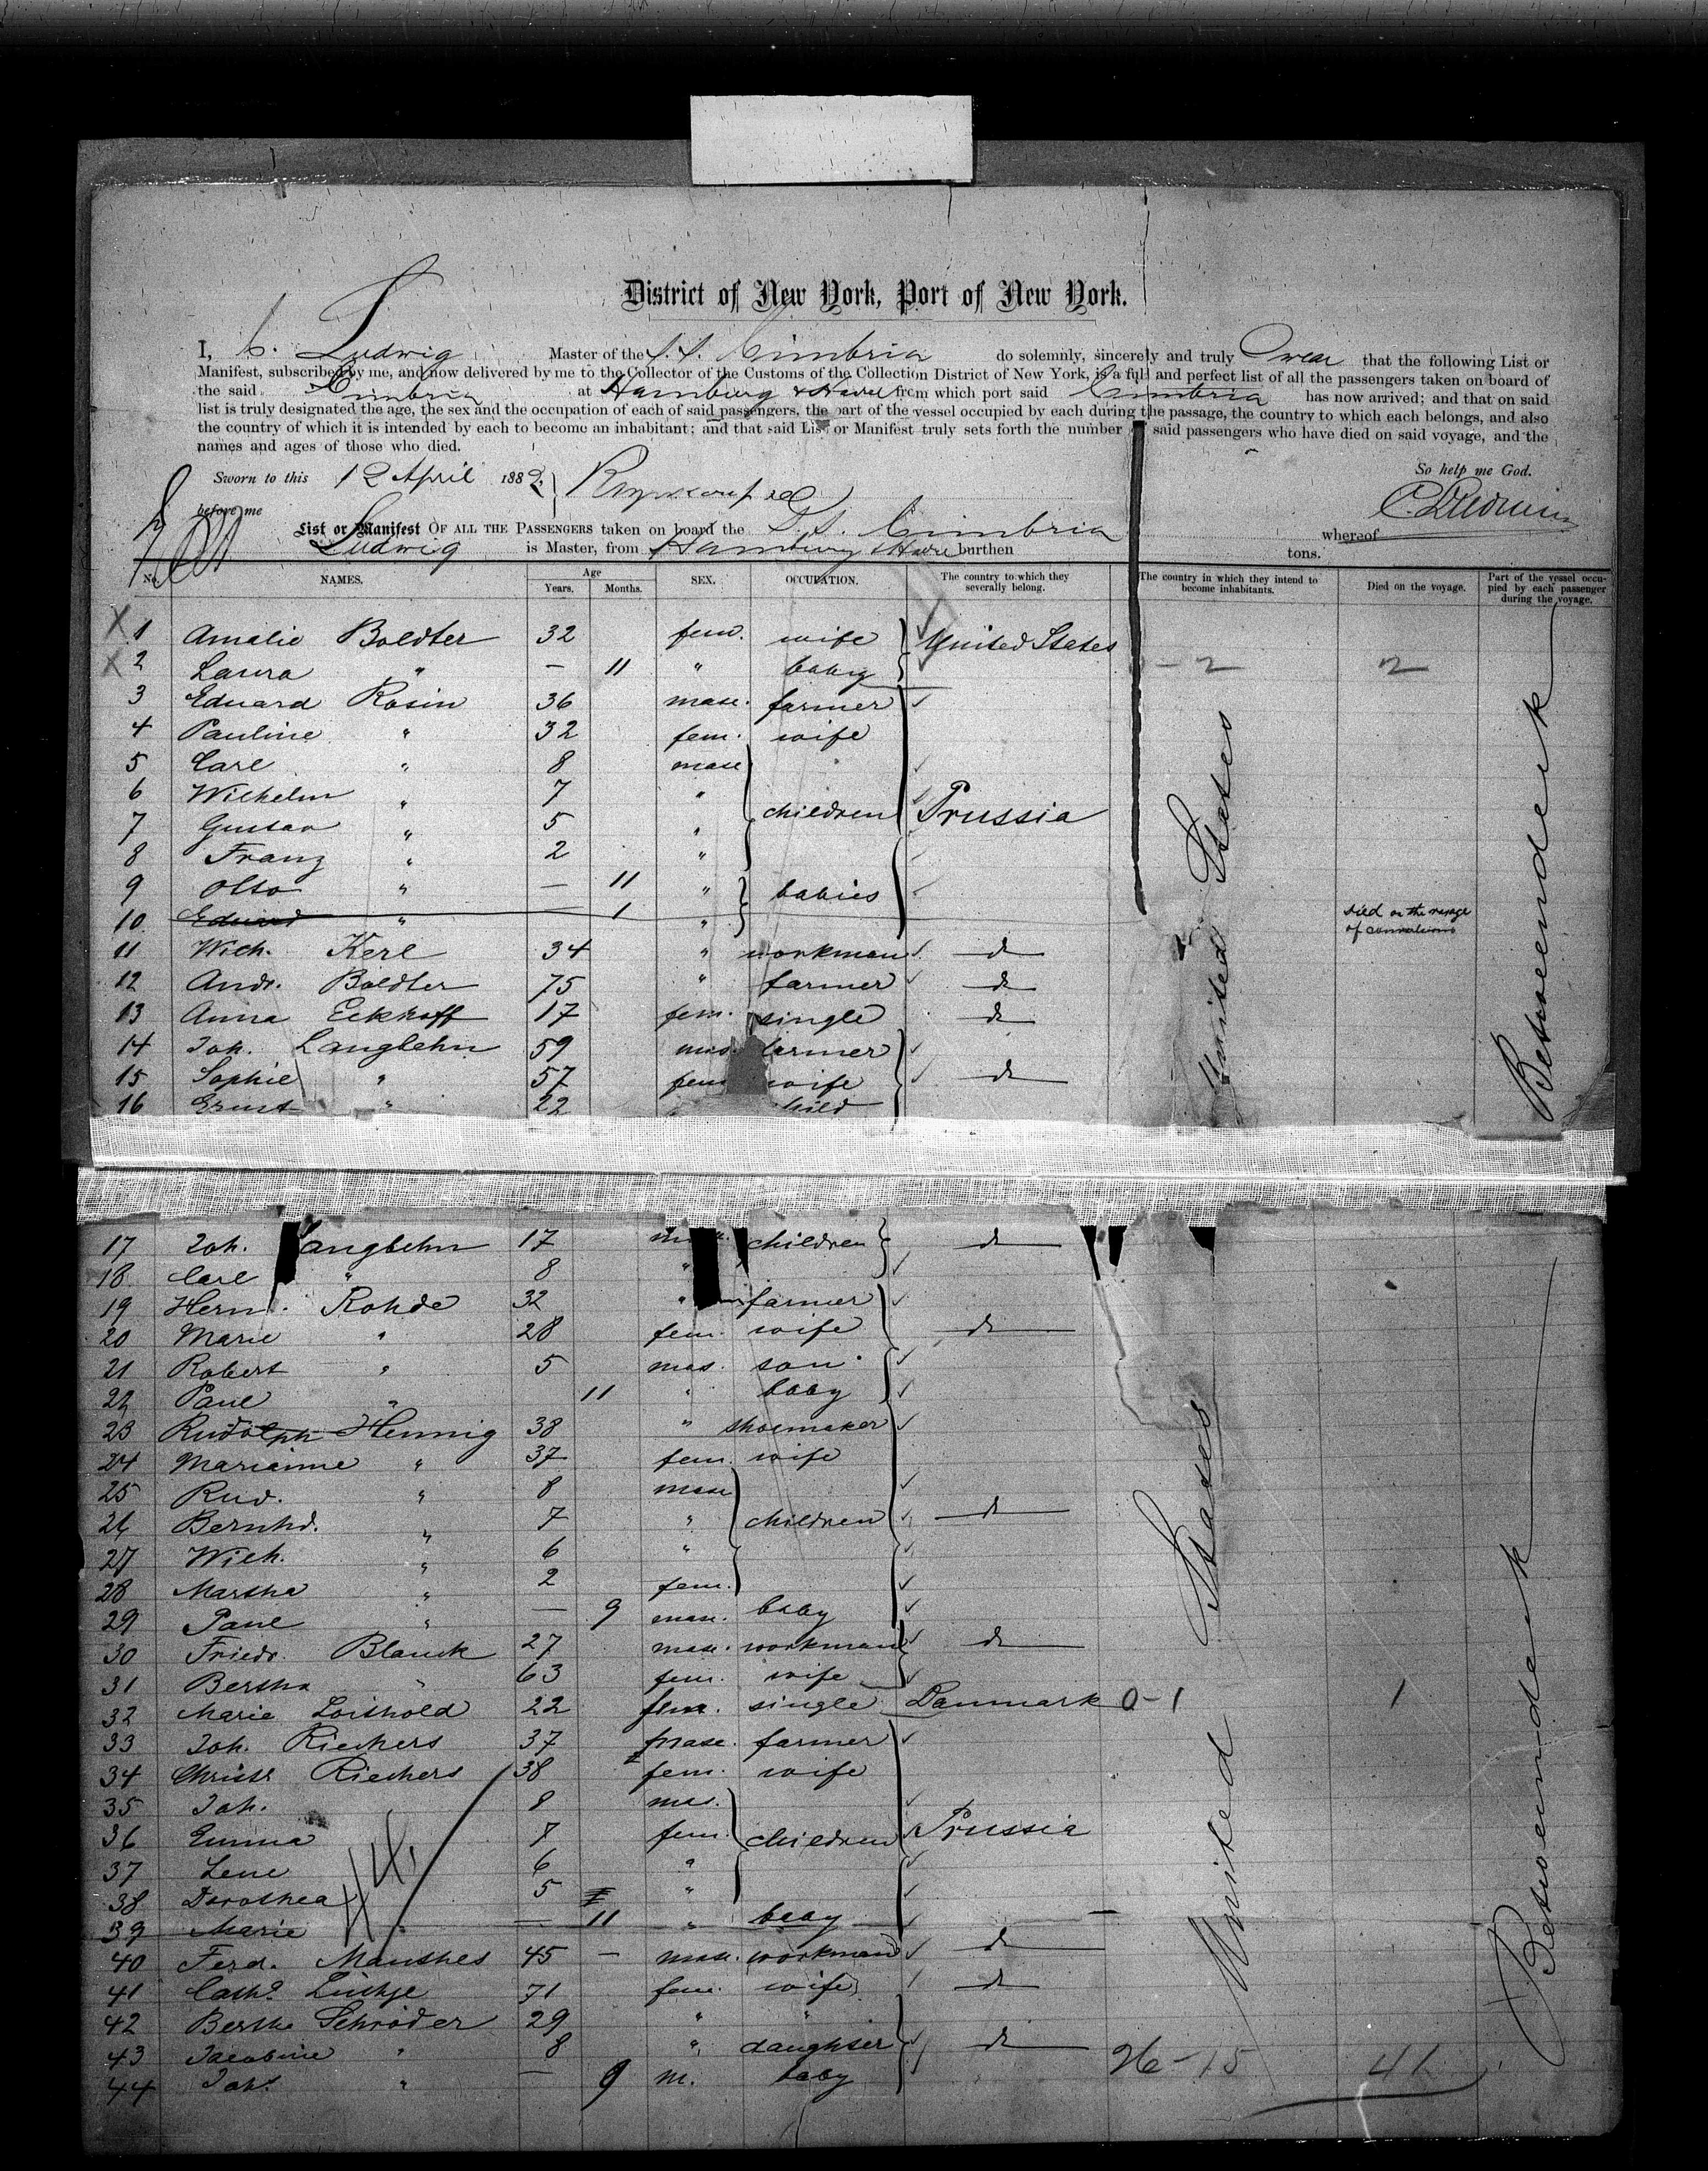 District of New York, Port of New York.
I, C. Ludwig Master of the S.S. Cimbria do solemnly, sincerely and truly Swear that the following List or
Manifest, subscribed by me, and now delivered by me to the Collector of the Customs of the Collection District of New York, is a full and perfect list of all the passengers taken on board of
the said Cimbria at Hamburg & Havre from which port said Cimbria has now arrived; and that on said
list is truly designated the age, the sex and the occupation of each of said passengers, the part of the vessel occupied by each during the passage, the country to which each belongs, and also
the country of which it is intended by each to become an inhabitant; and that said List or Manifest truly sets forth the number said passengers who have died on said voyage, and the
names and ages of those who died.
So help me God.
Sworn to this 12 April 1882
before me
C. Ludwig
List or Manifest OF ALL THE PASSENGERS taken on board the S.S. Cimbria whereof
Ludwig is Master, from Hamburg & Havre burthen tons.
No. NAMES. Age Years. Months. SEX. OCCUPATION. The country to which they severally belong. The country in which they intend to become inhabitants. Died on the voyage. Part of the vessel occupied by each passenger during the voyage.
X 1 Amalie Boldter 32 fem. wife United States
X 2 Laura " — 11 " baby - 2 2
3 Eduard Rosin 36 masc. farmer
4 Pauline " 32 fem. wife
5 Carl " 8 masc
6 Wilhelm " 7 "
7 Gustav " 5 " children Prussia
8 Franz " 2 "
9 Otto " — 11 " babies
10 Eduard " 1 " died on the voyage of convulsions
11 Wilh. Kerl 34 " workman do
12 Andr. Boldter 75 " farmer do
13 Anna Eckhoff 17 fem. single do
14 Joh. Langbehn 59 mas. farmer
15 Sophie " 57 fem wife do
16 Ernst " 22 child
United States
Betweendeck
17 Joh. Langbehn 17 children do
18 Carl " 8 "
19 Herm. Rohde 32 " farmer
20 Marie " 28 fem. wife do
21 Robert " 5 mas. son
22 Paul " 11 " baby
23 Rudolph Hennig 38 " shoemaker
24 Marianne " 37 fem. wife
25 Rud. " 8 masc
26 Bernhd. " 7 " children do
27 Wilh. " 6 "
28 Martha " 2 fem.
29 Paul " — 9 masc. baby
30 Friedr. Blanck 27 masc. workman do
31 Bertha " 63 fem. wife
32 Marie Loithold 22 fem. single Danmark 0-1 1
33 Joh. Riechers 37 masc. farmer
34 Christ. Riechers 38 fem. wife
35 Joh. 8 mas.
36 Emma 7 fem. children Prussia
37 Lene 6 "
38 Dorothea 5 "
39 Marie " — 11 " baby
40 Ferd. Manthes 45 — masc. workman do
41 Cath. Lüthje 71 fem. wife do
42 Bertha Schröder 29 " "
43 Jacobine " 8 " daughter do
44 Joh. " — 9 m. baby
44
26-15 41
United States
Betweendeck